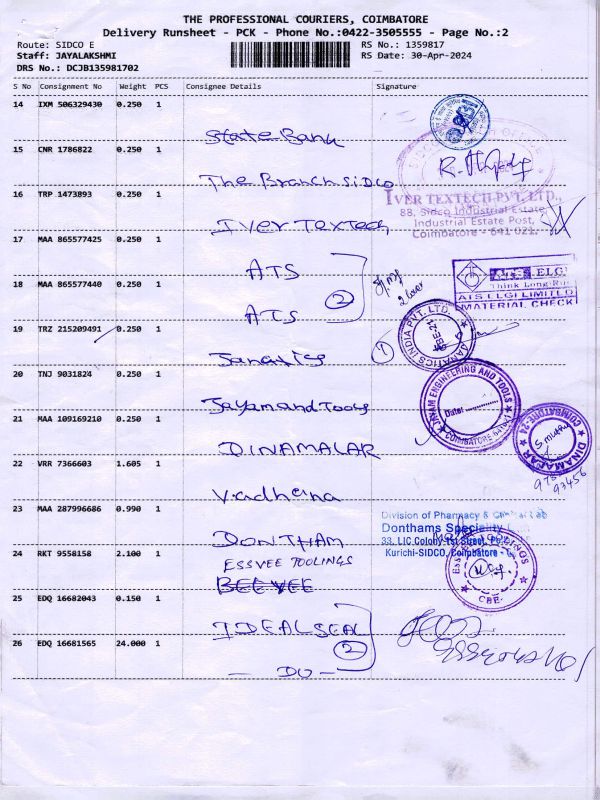 THE PROFESSIONAL COURIERS, COIMBATORE
Delivery Runsheet - PCK - Phone No.:0422-3505555 - Page No.:2
Route: SIDCO E
RS No.: 1359817
Staff: JAYALAKSHMI
RS Date: 30-Apr-2024
DRS No.: DCJB135981702
S No Consignment No Weight PCS Consignee Details Signature
14 IXM 506329430 0.250 1
State Bank
15 CNR 1786822 0.250 1
The Branch SIDCO
16 TRP 1473893 0.250 1
IVER TEXTECH PVT. LTD.,
88, Sidco Industrial Estate
Industrial Estate Post,
Coimbatore - 641 021.
Iver Textech
17 MAA 865577425 0.250 1
ATS
ELGI
Think Long Run
ATS ELGI LIMITED
MATERIAL CHECK
18 MAA 865577440 0.250 1
2
ATS
19 TRZ 215209491 0.250 1
JANATICS INDIA PVT. LTD.
1
Janatics
20 TNJ 9031824 0.250 1
JAYAM ENGINEERING AND TOOLS
Date:
COIMBATORE
Jayam and Tools
21 MAA 109169210 0.250 1
DINAMALAR
COIMBATORE-24
DINAMALAR
22 VRR 7366603 1.605 1
93456
Vadhana
23 MAA 287996686 0.990 1
Division of Pharmacy &
Donthams Speciality
33, LIC Colony 1st Street,
Kurichi-SIDCO, Coimbatore -
DONTHAM
24 RKT 9558158 2.100 1
ESSVEE TOOLINGS
CBE
ESSVEE TOOLINGS
25 EDQ 16682043 0.150 1
IDEAL SEAL
26 EDQ 16681565 24.000 1
2
- DO -